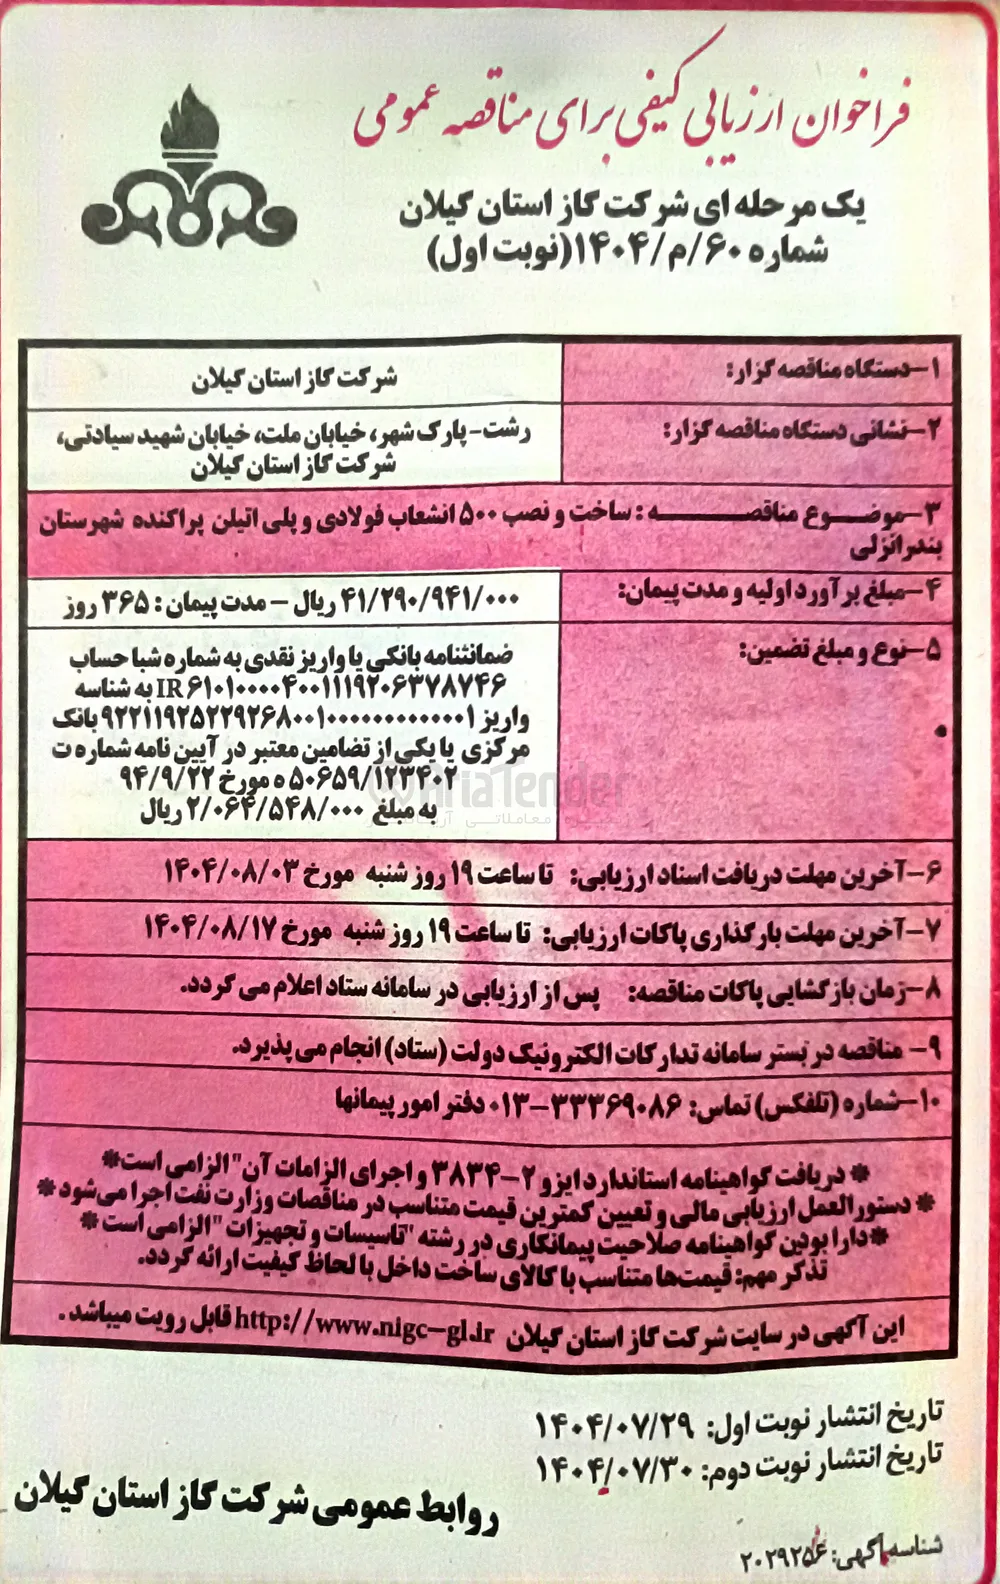 فراخوان ارزیابی کیفی برای مناقصه عمومی
یک مرحله ای شرکت گاز استان گیلان
شماره ۶۰/م/۱۴۰۴(نوبت اول)
۱-دستگاه مناقصه گزار: شرکت گاز استان گیلان
۲-نشانی دستگاه مناقصه گزار: رشت-پارک شهر، خیابان ملت، خیابان شهید سیادتی،
شرکت گاز استان گیلان
۳-موضوع مناقصه: ساخت و نصب ۵۰۰ انشعاب فولادی و پلی اتیلن پراکنده شهرستان
بندرانزلی
۴-مبلغ برآورد اولیه و مدت پیمان: ۴۱/۲۹۰/۹۴۱/۰۰۰ ریال – مدت پیمان: ۳۶۵ روز
۵-نوع و مبلغ تضمین: ضمانتنامه بانکی یا واریز نقدی به شماره شبا حساب
IR۶۱۰۱۰۰۰۰۴۰۰۱۱۱۹۲۰۶۳۷۸۷۴۶ به شناسه
واریز ۹۲۲۱۱۹۲۵۲۲۹۲۶۸۰۰۱۰۰۰۰۰۰۰۰۰۰۰۰۱ بانک
مرکزی یا یکی از تضامین معتبر در آیین نامه شماره ت
۵۰۶۵۹/۱۲۳۴۰۲ ه مورخ ۹۴/۹/۲۲
به مبلغ ۲/۰۶۴/۵۴۸/۰۰۰ ریال
AriaTender
۶-آخرین مهلت دریافت اسناد ارزیابی: تا ساعت ۱۹ روز شنبه مورخ ۱۴۰۴/۰۸/۰۳
۷-آخرین مهلت بارگذاری پاکات ارزیابی: تا ساعت ۱۹ روز شنبه مورخ ۱۴۰۴/۰۸/۱۷
۸-زمان بازگشایی پاکات مناقصه: پس از ارزیابی در سامانه ستاد اعلام می گردد.
۹- مناقصه در بستر سامانه تدارکات الکترونیک دولت (ستاد) انجام می پذیرد.
۱۰-شماره (تلفکس) تماس: ۳۳۳۶۹۰۸۶-۰۱۳ دفتر امور پیمانها
* دریافت گواهینامه استاندارد ایزو ۲-۳۸۳۴ و اجرای الزامات آن" الزامی است*
* دستورالعمل ارزیابی مالی و تعیین کمترین قیمت متناسب در مناقصات وزارت نفت اجرا می‌شود *
*دارا بودن گواهینامه صلاحیت پیمانکاری در رشته "تاسیسات و تجهیزات" الزامی است *
تذکر مهم: قیمت‌ها متناسب با کالای ساخت داخل با لحاظ کیفیت ارائه گردد.
این آگهی در سایت شرکت گاز استان گیلان http://www.nigc-gl.ir قابل رویت میباشد.
تاریخ انتشار نوبت اول: ۱۴۰۴/۰۷/۲۹
تاریخ انتشار نوبت دوم: ۱۴۰۴/۰۷/۳۰
روابط عمومی شرکت گاز استان گیلان
شناسه آگهی: ۲۰۲۹۲۵۶